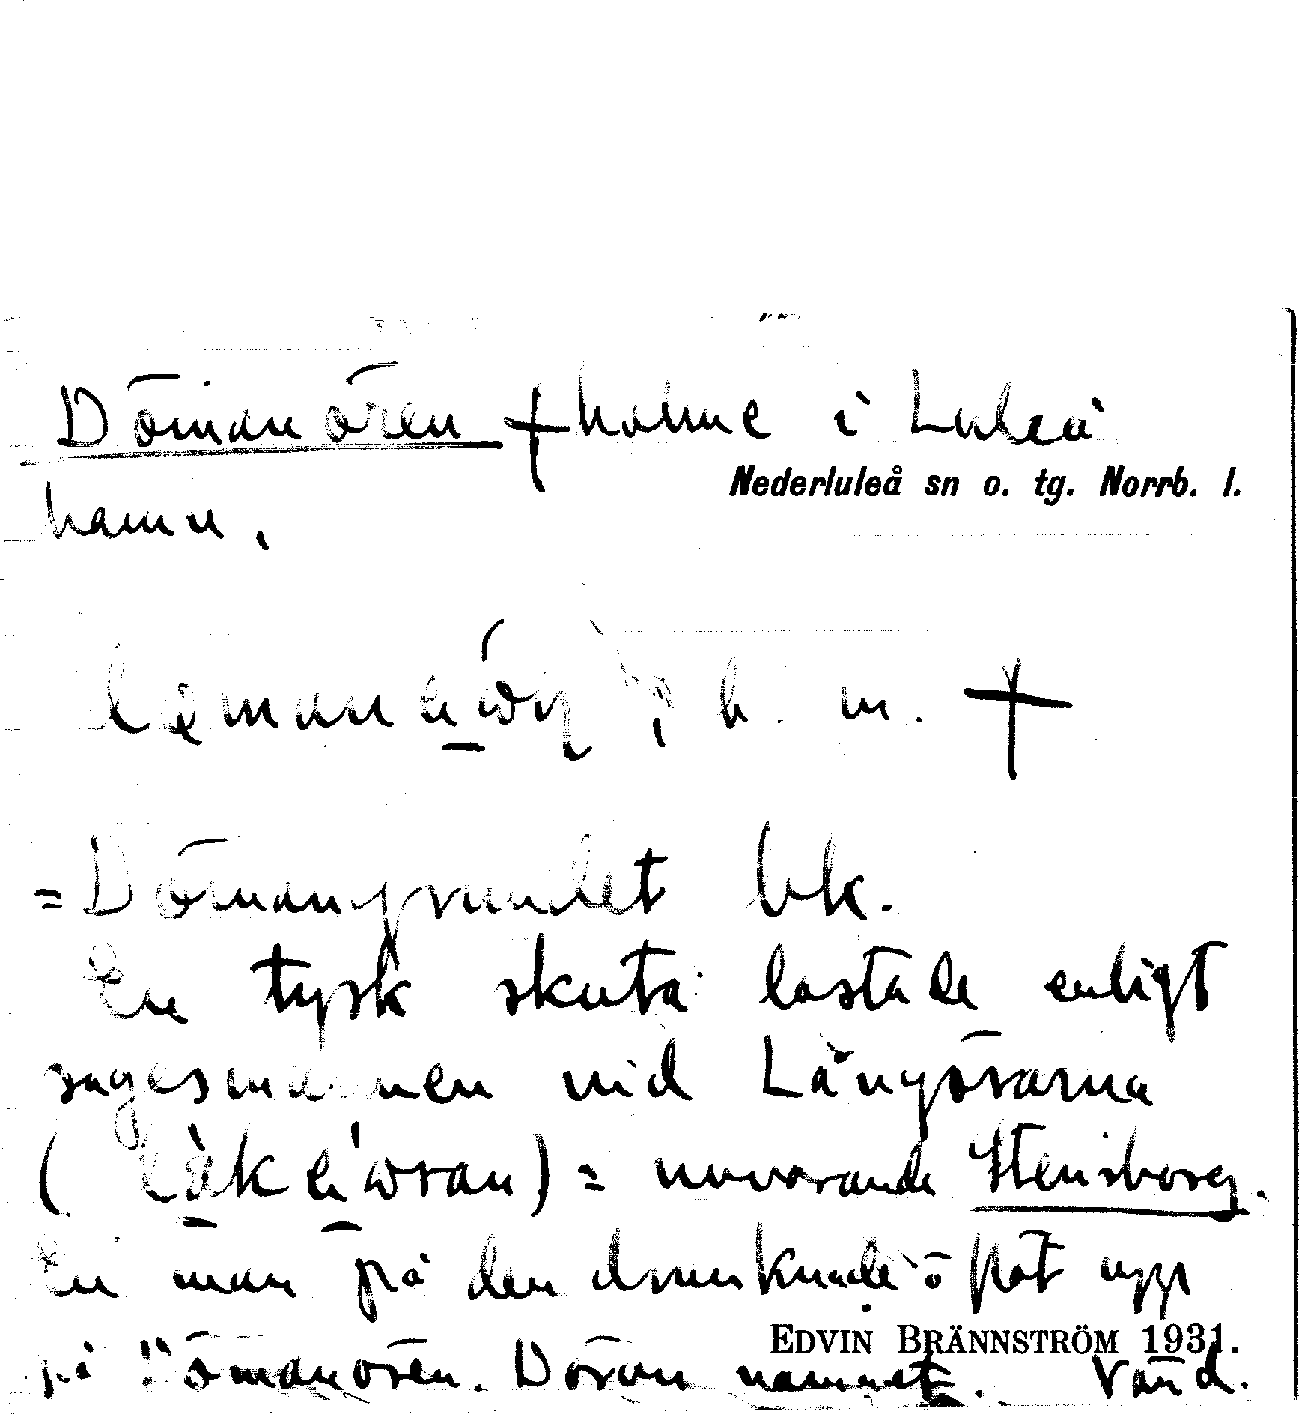 Dömanören + holme i Luleå
Nederluleå sn o. tg. Norrb. l.
hamn.
b. m. +
= Dömangrundet bk.
En tysk skuta lastade enligt
sagesmannen vid Långörarna
) = nuvarande Stensborg.
En man på den drunknade o flöt upp
på Dömanören. Därav namnet. Vänd.
EDVIN BRÄNNSTRÖM 1931.